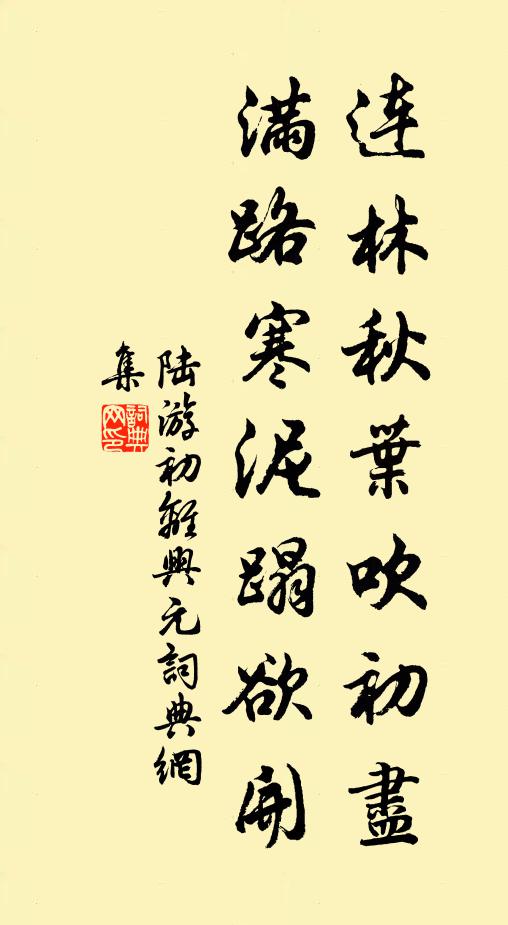 連林秋葉吹初盡
滿路寒泥蹋欲開
陸游初離興元詞典網
集
詞典
网印